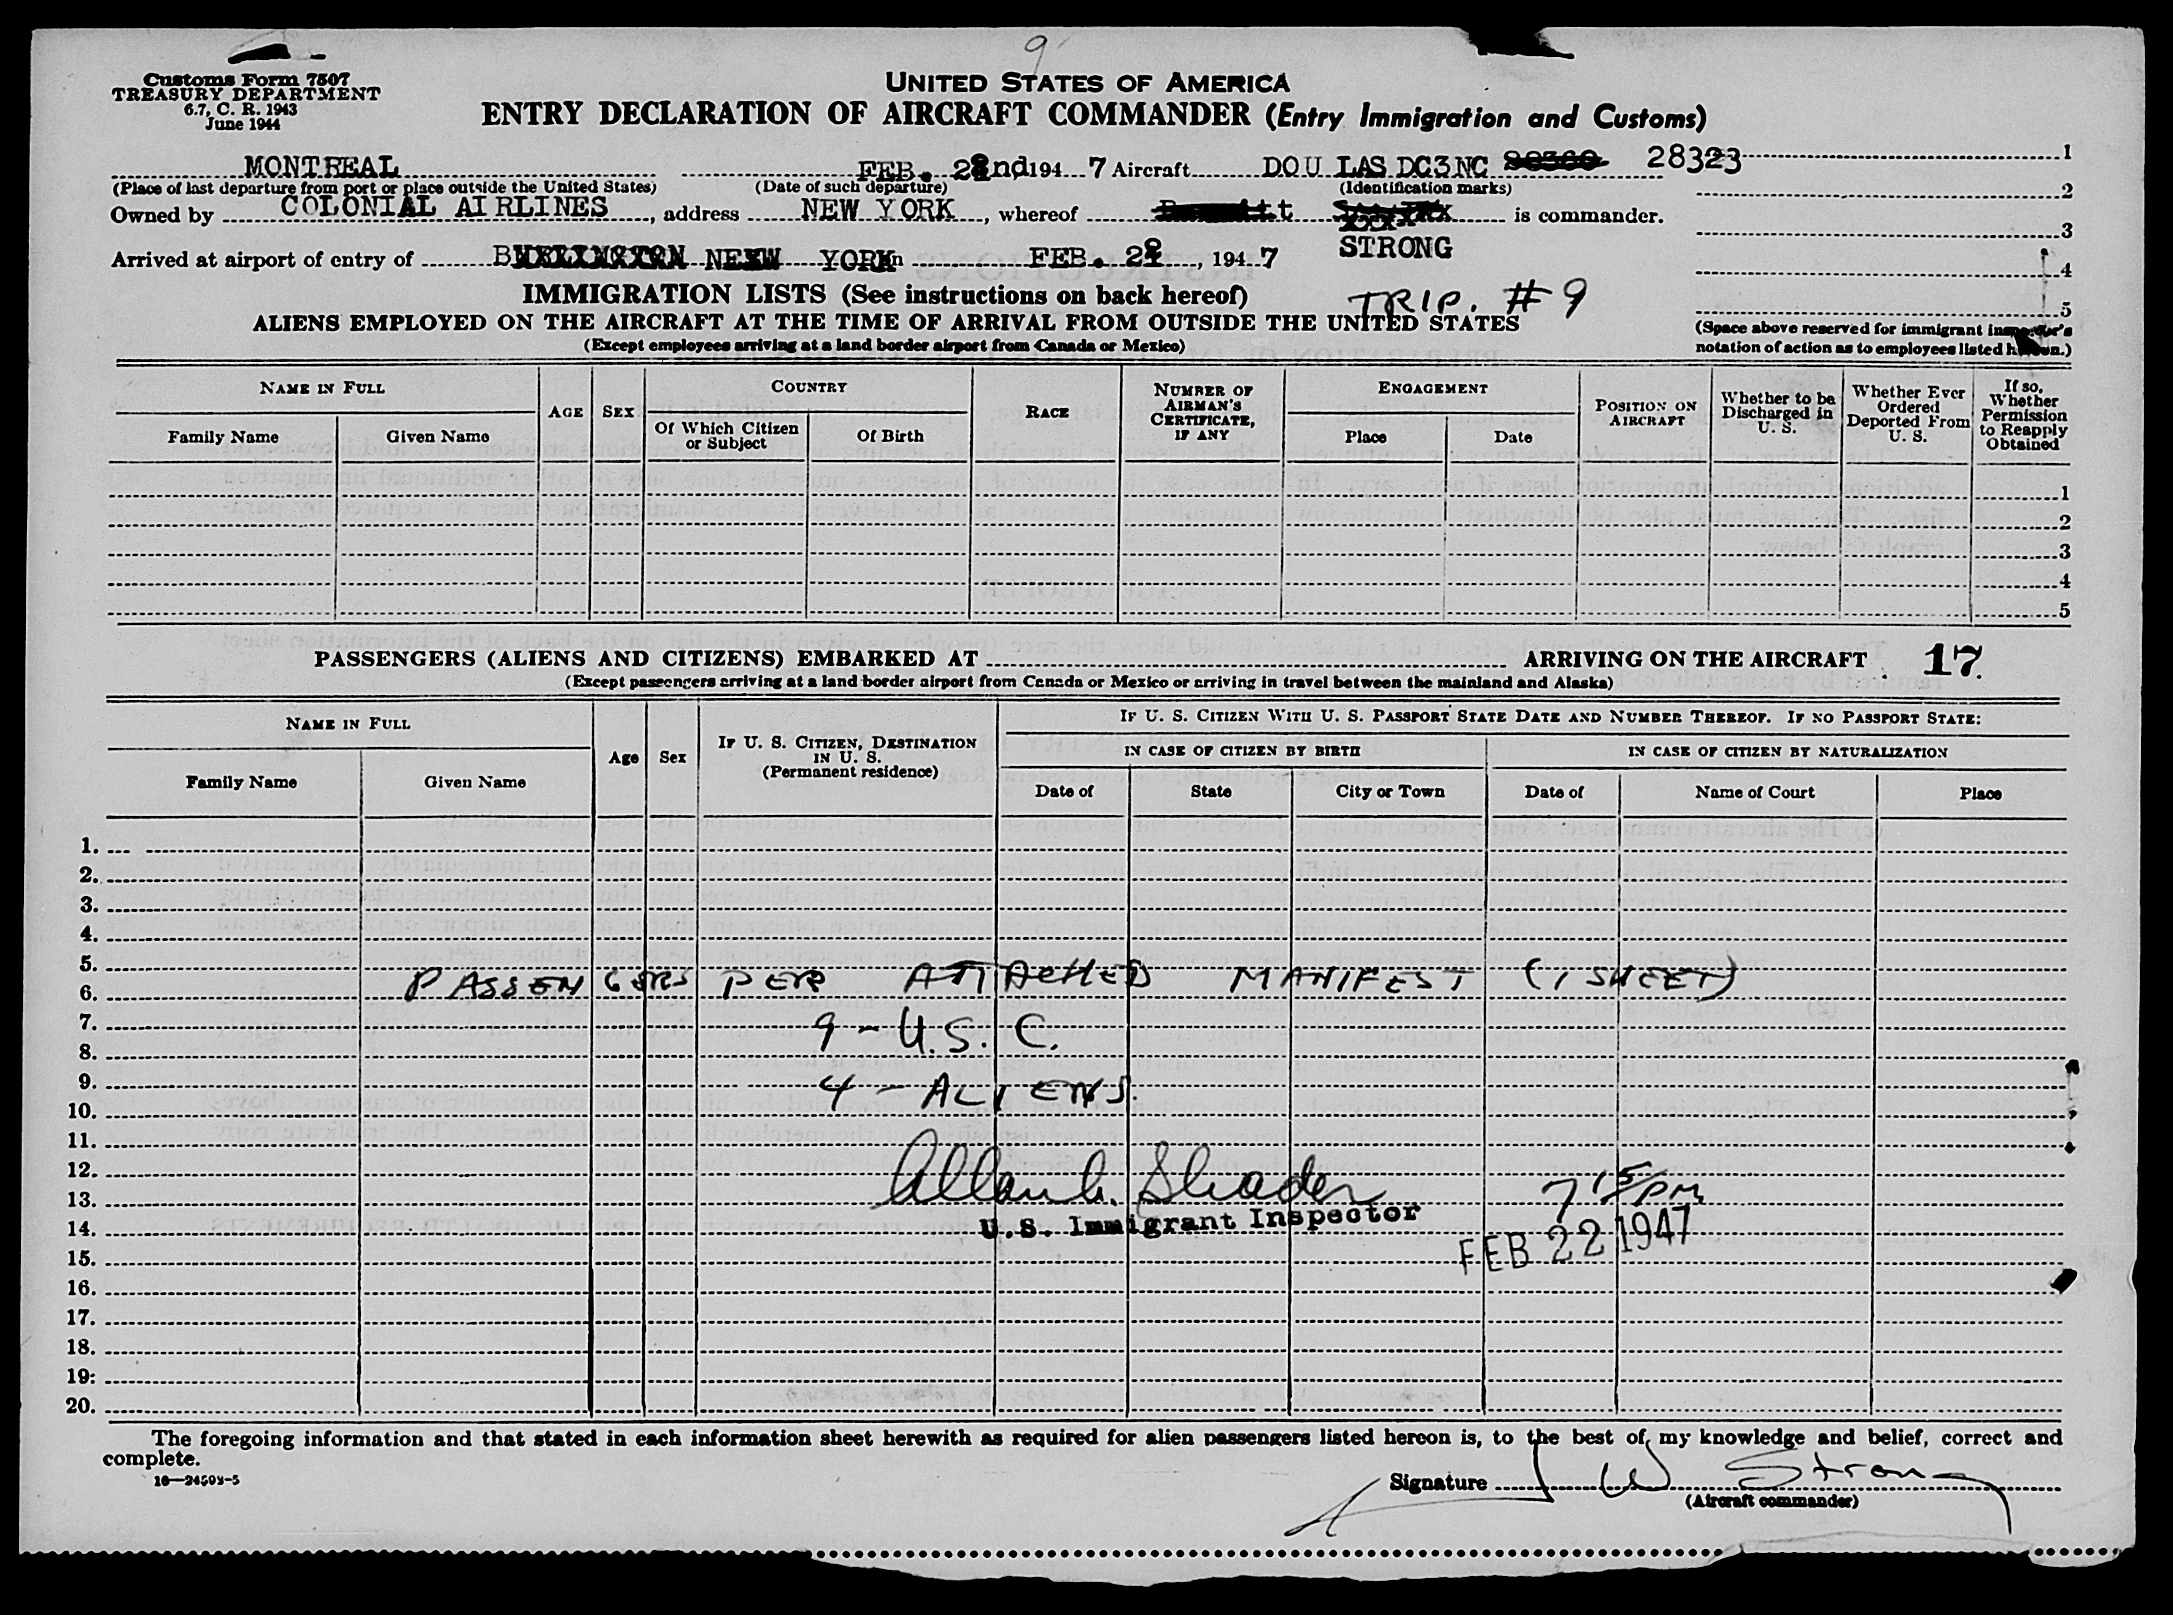 9
Customs Form 7507
TREASURY DEPARTMENT
6.7, C. R. 1943
June 1944
UNITED STATES OF AMERICA
ENTRY DECLARATION OF AIRCRAFT COMMANDER (Entry Immigration and Customs)
MONTREAL FEB. 22nd 194 7 Aircraft DOU LAS DC3 NC 28323 1
(Place of last departure from port or place outside the United States) (Date of such departure) (Identification marks) 2
Owned by COLONIAL AIRLINES, address NEW YORK, whereof is commander.
3
Arrived at airport of entry of NEW YORK in FEB. 22, 194 7 STRONG
4
IMMIGRATION LISTS (See instructions on back hereof) TRIP. # 9
5
ALIENS EMPLOYED ON THE AIRCRAFT AT THE TIME OF ARRIVAL FROM OUTSIDE THE UNITED STATES
(Except employees arriving at a land border airport from Canada or Mexico)
(Space above reserved for immigrant inspector's
notation of action as to employees listed hereon.)
NAME IN FULL
Family Name Given Name
AGE SEX
COUNTRY
Of Which Citizen or Subject Of Birth
RACE
NUMBER OF AIRMAN'S CERTIFICATE, IF ANY
ENGAGEMENT
Place Date
POSITION ON AIRCRAFT
Whether to be Discharged in U. S.
Whether Ever Ordered Deported From U. S.
If so, Whether Permission to Reapply Obtained
1
2
3
4
5
PASSENGERS (ALIENS AND CITIZENS) EMBARKED AT ARRIVING ON THE AIRCRAFT 17.
(Except passengers arriving at a land border airport from Canada or Mexico or arriving in travel between the mainland and Alaska)
NAME IN FULL
Family Name Given Name
Age Sex
IF U. S. CITIZEN, DESTINATION IN U. S.
(Permanent residence)
IF U. S. CITIZEN WITH U. S. PASSPORT STATE DATE AND NUMBER THEREOF. IF NO PASSPORT STATE:
IN CASE OF CITIZEN BY BIRTH IN CASE OF CITIZEN BY NATURALIZATION
Date of State City or Town Date of Name of Court Place
1.
2.
3.
4.
5.
6. PASSENGERS PER ATTACHED MANIFEST (1 SHEET)
7. 9 - U.S. C.
8.
9. 4 - ALIENS.
10.
11.
12.
13. Allan h. Shader 7 15/PM
14. U.S. Immigrant Inspector FEB 22 1947
15.
16.
17.
18.
19.
20.
The foregoing information and that stated in each information sheet herewith as required for alien passengers listed hereon is, to the best of my knowledge and belief, correct and
complete.
16—24593-5
Signature J W Strong
(Aircraft commander)